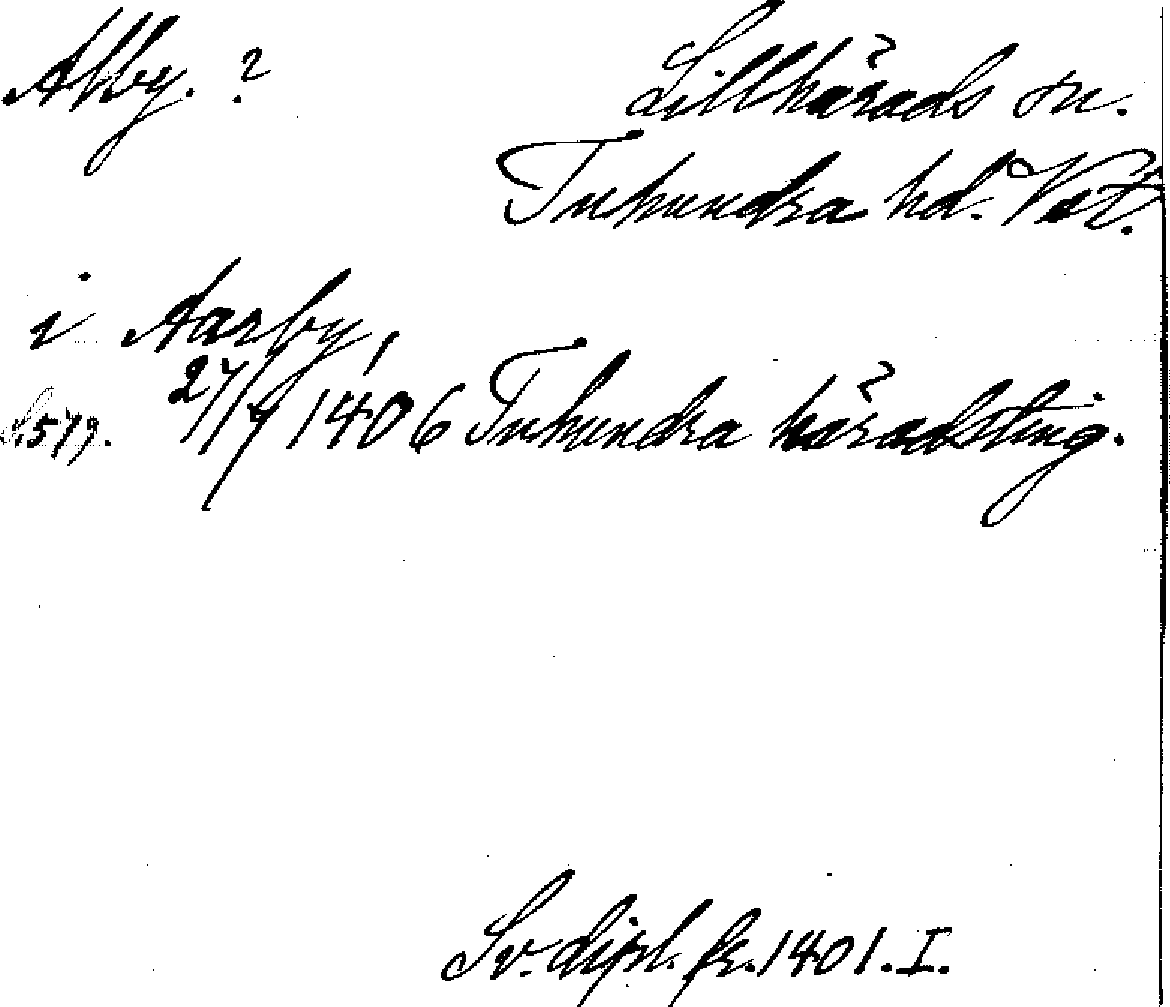 Åby. ? Lillhärads sn.
Tuhundra hd. Vst.
i Aarby,
S. 579. 27/9 1406 Tuhundra häradsting.
Sv. dipl. fr. 1401. I.